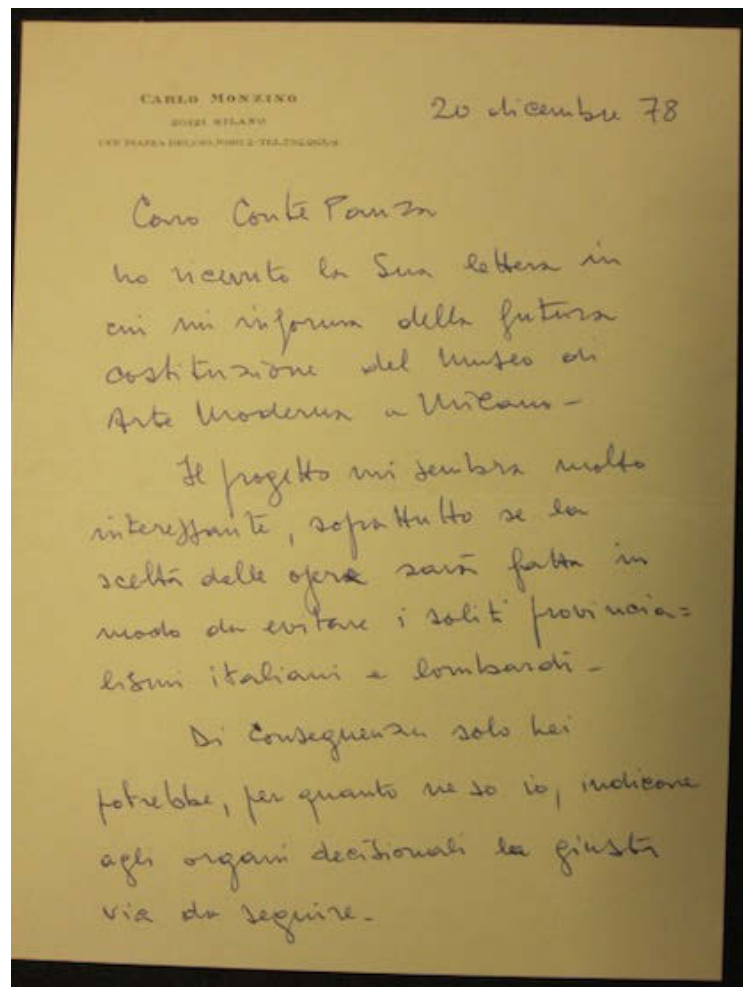 CARLO MONZINO
20121 MILANO
20 dicembre 78
Caro Conte Panza
ho ricevuto la Sua lettera in
cui mi informa della futura
costituzione del Museo di
Arte Moderna a Milano -
Il progetto mi sembra molto
interessante, soprattutto se la
scelta delle opere sarà fatta in
modo da evitare i soliti provincia=
lismi italiani e lombardi -
Di conseguenza solo Lei
potrebbe, per quanto ne so io, indicare
agli organi decisionali la giusta
via da seguire -